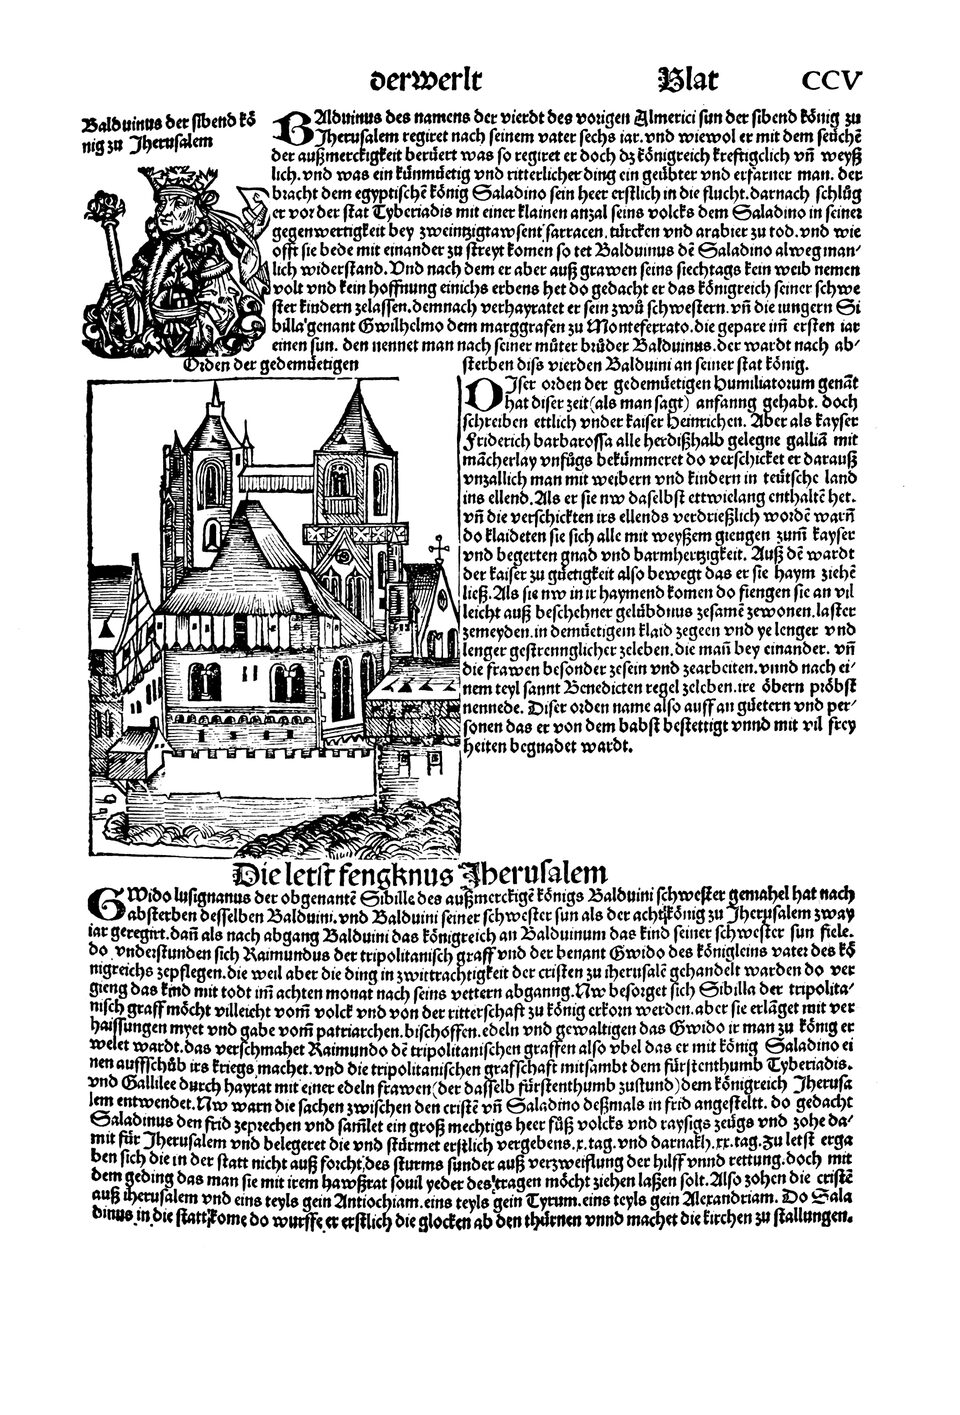 derwerlt Blat CCV
Balduinus der sibend kö
nig zu Jherusalem
BAlduinus des namens der vierdt des vorigen Almerici sun der sibend könig zu
Jherusalem regiret nach seinem vater sechs iar. vnd wiewol er mit dem seüchē
der außmerckigkeit berüert was so regiret er doch dz königreich kreftigclich vñ weyß
lich. vnd was ein künmüetig vnd ritterlicher ding ein geübter vnd erfarner man. der
bracht dem egyptischē könig Saladino sein heer erstlich in die flucht. darnach schlůg
er vor der stat Tyberiadis mit einer klainen anzal seins volcks dem Saladino in seiner
gegenwertigkeit bey zweintzigtawsent sarracen. türcken vnd arabier zu tod. vnd wie
offt sie bede mit einander zu streyt komen so tet Balduinus dē Saladino alweg man-
lich widerstand. Vnd nach dem er aber auß grawen seins siechtags kein weib nemen
wolt vnd kein hoffnung einichs erbens het do gedacht er das königreich seiner schwe
ster kindern zelassen. demnach verhayratet er sein zwů schwestern. vñ die iungern Si
billa genant Gwilhelmo dem marggrafen zu Monteferrato. die gepare im̄ ersten iar
einen sun. den nennet man nach seiner můter brůder Balduinus. der wardt nach ab-
sterben diss vierden Balduini an seiner stat könig.
Orden der gedemüetigen
DIser orden der gedemüetigen Humiliatorum genāt
hat diser zeit (als man sagt) anfanng gehabt. doch
schreiben ettlich vnder kaiser Heinrichen. Aber als kayser
Friderich barbarossa alle herdißhalb gelegne galliā mit
mācherlay vnfůgs bekümmeret do verschicket er darauß
vnzallich man mit weibern vnd kindern in teütsche land
ins ellend. Als er sie nw daselbst ettwielang enthaltē het.
vñ die verschickten irs ellends verdrießlich wordē warñ
do klaideten sie sich alle mit weyßem giengen zum̄ kayser
vnd begerten gnad vnd barmhertzigkeit. Auß dē wardt
der kaiser zu güetigkeit also bewegt das er sie haym ziehē
ließ. Als sie nw in ir haymend komen do fiengen sie an vil
leicht auß beschehner gelübdnus zesamē zewonen. laster
zemeyden. in demüetigem klaid zegeen vnd ye lenger vnd
lenger gestrennglicher zeleben. die mañ bey einander. vñ
die frawen besonder zesein vnd zearbeiten. vnnd nach ei-
nem teyl sannt Benedicten regel zeleben. ire öbern pröbst
nennede. Diser orden name also auff an güetern vnd per-
sonen das er von dem babst bestettigt vnnd mit vil frey
heiten begnadet wardt.
Die letst fengknus Jherusalem
GWido lusignanus der obgenantē Sibille des außmerckigē königs Balduini schwester gemahel hat nach
absterben desselben Balduini. vnd Balduini seiner schwester sun als der acht könig zu Jherusalem zway
iar geregirt. dañ als nach abgang Balduini das königreich an Balduinum das kind seiner schwester sun fiele.
do vnderstunden sich Raimundus der tripolitanisch graff vnd der benant Gwido des königleins vater des kö
nigreichs zepflegen. die weil aber die ding in zwittrachtigkeit der cristen zu iherusalē gehandelt warden do ver
gieng das kind mit todt im̄ achten monat nach seins vettern abganng. Nw besorget sich Sibilla der tripolita-
nisch graff möcht villeicht vom̄ volck vnd von der ritterschaft zu könig erkorn werden. aber sie erlāget mit ver
haissungen myet vnd gabe vom̄ patriarchen. bischoffen. edeln vnd gewaltigen das Gwido ir man zu könig er
welet wardt. das verschmahet Raimundo dē tripolitanischen graffen also vbel das er mit könig Saladino ei
nen auffschůb irs kriegs machet. vnd die tripolitanischen grafschaft mitsambt dem fürstenthumb Tyberiadis.
vnd Gallilee durch hayrat mit einer edeln frawen (der dasselb fürstenthumb zustund) dem königreich Jherusa
lem entwendet. Nw warn die sachen zwischen den cristē vñ Saladino deßmals in frid angestelt. do gedacht
Saladinus den frid zeprechen vnd sam̄let ein groß mechtigs heer fůß volcks vnd raysigs zeügs vnd zohe da-
mit für Jherusalem vnd belegeret die vnd stürmet erstlich vergebens. x. tag. vnd darnach. xx. tag. Zu letst erga
ben sich die in der statt nicht auß forcht des sturms sunder auß verzweiflung der hilff vnnd rettung. doch mit
dem geding das man sie mit irem hawßrat souil yeder des tragen möcht ziehen laßen solt. Also zohen die cristē
auß iherusalem vnd eins teyls gein Antiochiam. eins teyls gein Tyrum. eins teyls gein Alexandriam. Do Sala
dinus in die statt kome do wurffe er erstlich die glocken ab den thürnen vnnd machet die kirchen zu stallungen.